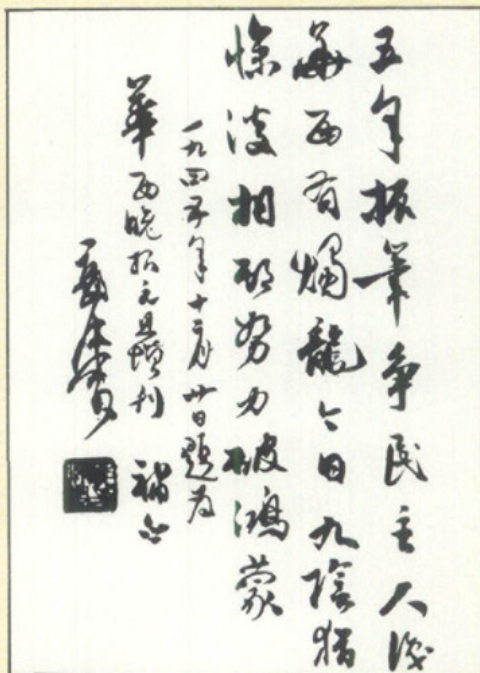 五年振筆争民主人識
華西有燭龍今日九陰猶
慘淡相期努力破鴻蒙
一九四五年十二月廿日題為
華西晚报元旦增刊 補白